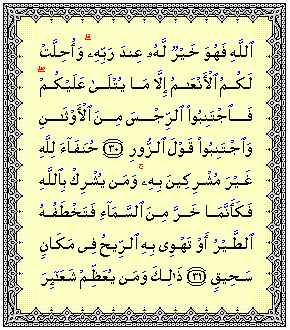 ٱللَّهِ فَهُوَ خَيْرٌ لَّهُۥ عِندَ رَبِّهِۦ ۗ وَأُحِلَّتْ
لَكُمُ ٱلْأَنْعَـٰمُ إِلَّا مَا يُتْلَىٰ عَلَيْكُمْ ۖ
فَٱجْتَنِبُوا۟ ٱلرِّجْسَ مِنَ ٱلْأَوْثَـٰنِ
وَٱجْتَنِبُوا۟ قَوْلَ ٱلزُّورِ ﴿٣٠﴾ حُنَفَآءَ لِلَّهِ
غَيْرَ مُشْرِكِينَ بِهِۦ ۚ وَمَن يُشْرِكْ بِٱللَّهِ
فَكَأَنَّمَا خَرَّ مِنَ ٱلسَّمَآءِ فَتَخْطَفُهُ
ٱلطَّيْرُ أَوْ تَهْوِى بِهِ ٱلرِّيحُ فِى مَكَانٍ
سَحِيقٍ ﴿٣١﴾ ذَٰلِكَ وَمَن يُعَظِّمْ شَعَـٰٓئِرَ